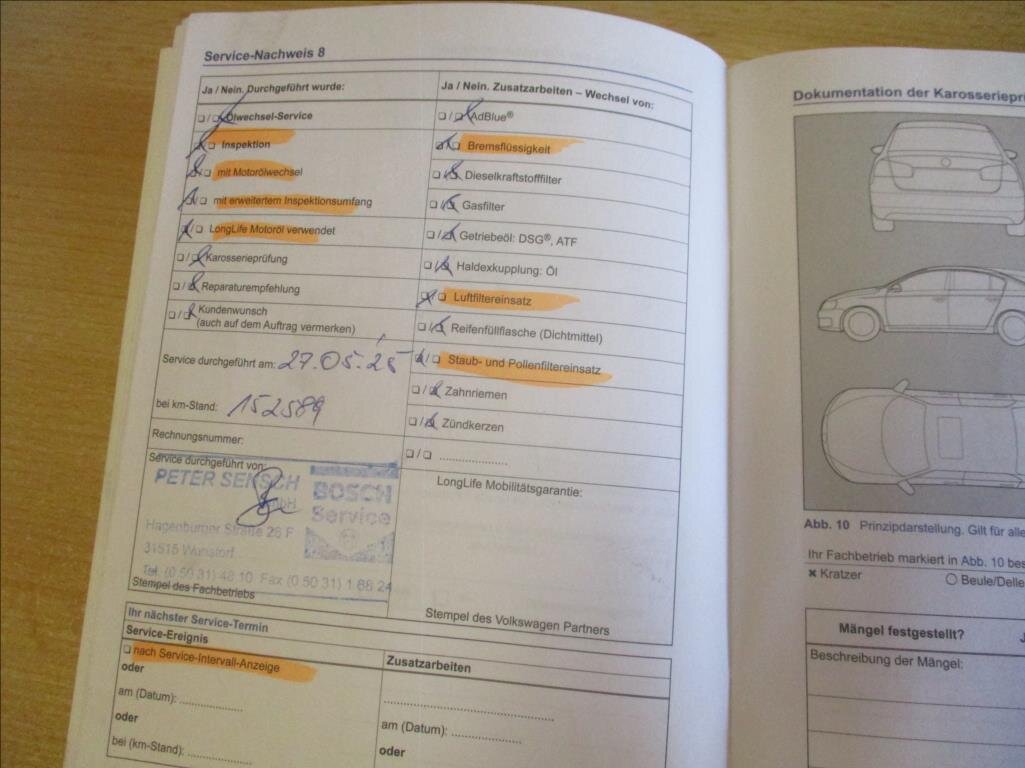 Service-Nachweis 8
Ja / Nein. Durchgeführt wurde:
❑ / ❑ Ölwechsel-Service
❑ / ❑ Inspektion
❑ / ❑ mit Motorölwechsel
❑ / ❑ mit erweitertem Inspektionsumfang
❑ / ❑ LongLife Motoröl verwendet
❑ / ❑ Karosserieprüfung
❑ / ❑ Reparaturempfehlung
❑ / ❑ Kundenwunsch
(auch auf dem Auftrag vermerken)
Service durchgeführt am: 27.05.25
bei km-Stand: 152589
Rechnungsnummer:
Service durchgeführt von:
PETER SENSCH
GmbH
BOSCH
Service
Hagenburger Straße 26 F
31515 Wunstorf
Tel. (0 50 31) 48 10 Fax (0 50 31) 1 68 24
Stempel des Fachbetriebs
Ja / Nein. Zusatzarbeiten – Wechsel von:
❑ / ❑ AdBlue®
❑ / ❑ Bremsflüssigkeit
❑ / ❑ Dieselkraftstofffilter
❑ / ❑ Gasfilter
❑ / ❑ Getriebeöl: DSG®, ATF
❑ / ❑ Haldexkupplung: Öl
❑ / ❑ Luftfiltereinsatz
❑ / ❑ Reifenfüllflasche (Dichtmittel)
❑ / ❑ Staub- und Pollenfiltereinsatz
❑ / ❑ Zahnriemen
❑ / ❑ Zündkerzen
❑ / ❑ ......................
LongLife Mobilitätsgarantie:
Stempel des Volkswagen Partners
Ihr nächster Service-Termin
Service-Ereignis
❑ nach Service-Intervall-Anzeige
oder
am (Datum): ....................
oder
bei (km-Stand): ....................
Zusatzarbeiten
......................................................
am (Datum): ......................
oder
Dokumentation der Karosseriepr
Abb. 10 Prinzipdarstellung. Gilt für alle
Ihr Fachbetrieb markiert in Abb. 10 bes
✖ Kratzer
○ Beule/Delle
Mängel festgestellt?
J
Beschreibung der Mängel: